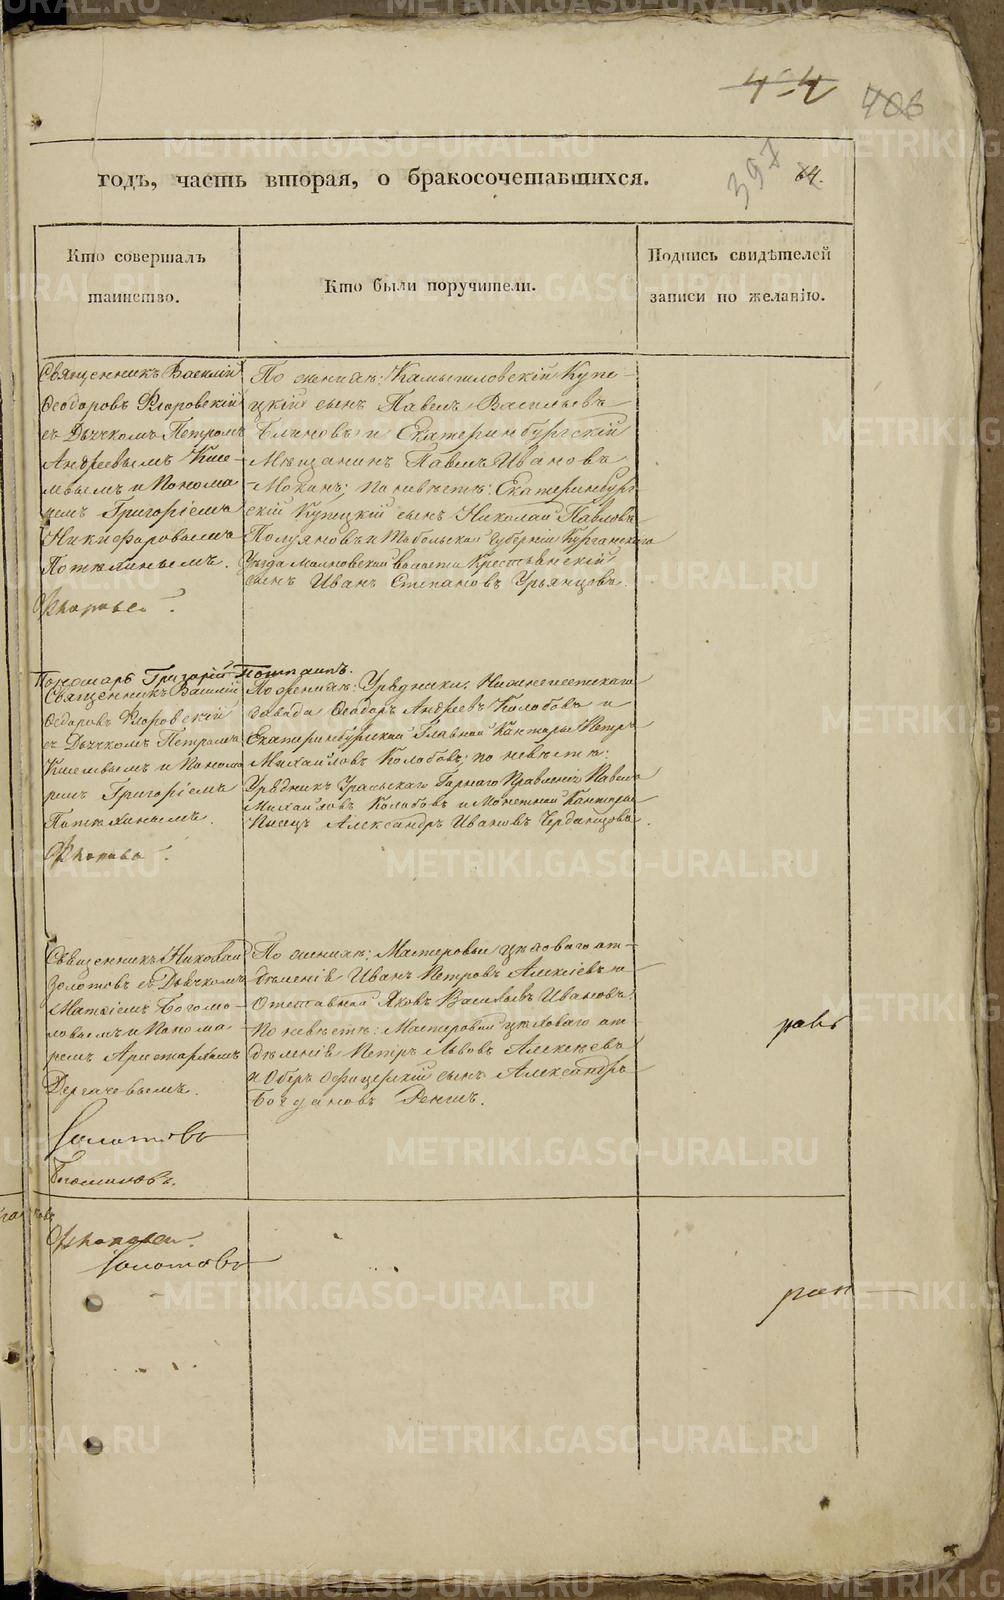 406
397
годъ, часть вторая, о бракосочетавшихся.
64.
Кто совершалъ
таинство.
Кто были поручители.
Подпись свидѣтелей
записи по желанію.
Священникъ Василій
Ѳеодоровъ Флоровскій
съ Дьячкомъ Петромъ
Андреевымъ Кисе-
левымъ и Понома
ремъ Григоріемъ
Никифоровымъ
Поткинымъ.
По женихѣ: Камышловскій Купе-
цкій сынъ Павелъ Васильевъ
Блиновъ и Екатеринбургскій
Мѣщанинъ Павелъ Ивановъ
Мокинъ; по невѣстѣ: Екатеринбург-
скій Купецкій сынъ Николай Павловъ
Полуяновъ и Тобольской Губерніи Курганскаго
Уѣзда волости Крестьянскій
сынъ Иванъ Степановъ Урьянцовъ.
Пономарь Григорій
Священникъ Василій
Ѳедоровъ Флоровскій
съ Дьячкомъ Петромъ
Киселевымъ и Понома
ремъ Григоріемъ
По женихѣ: Урядники: Нижнеисетскаго
завода Ѳеодоръ Андреевъ Колобовъ и
Екатеринбургской Главной Канторы Петръ
Михайловъ Колобовъ; по невѣстѣ:
Урядникъ Уральскаго Горнаго Правленія Павелъ
Михайловъ Колобовъ и Монетной Канторы
Писецъ Александръ Ивановъ Черданцовъ.
Священникъ Николай
Золотовъ съ Дьячкомъ
Матвіемъ Богомо-
ловымъ и Понома-
ремъ Аристархомъ
Дергачевымъ.
По женихѣ: Мастеровые цѣховаго от-
дѣленія Иванъ Петровъ Алексіевъ и
Отставной Яковъ Васильевъ Ивановъ;
По невѣстѣ: Мастеровой цѣховаго от-
дѣленія Петръ Львовъ Алексѣевъ
и Оберъ офицерскій сынъ Александръ
Богдановъ
Золотовъ
Богомоловъ.
Золотовъ
METRIKI.GASO-URAL.RU